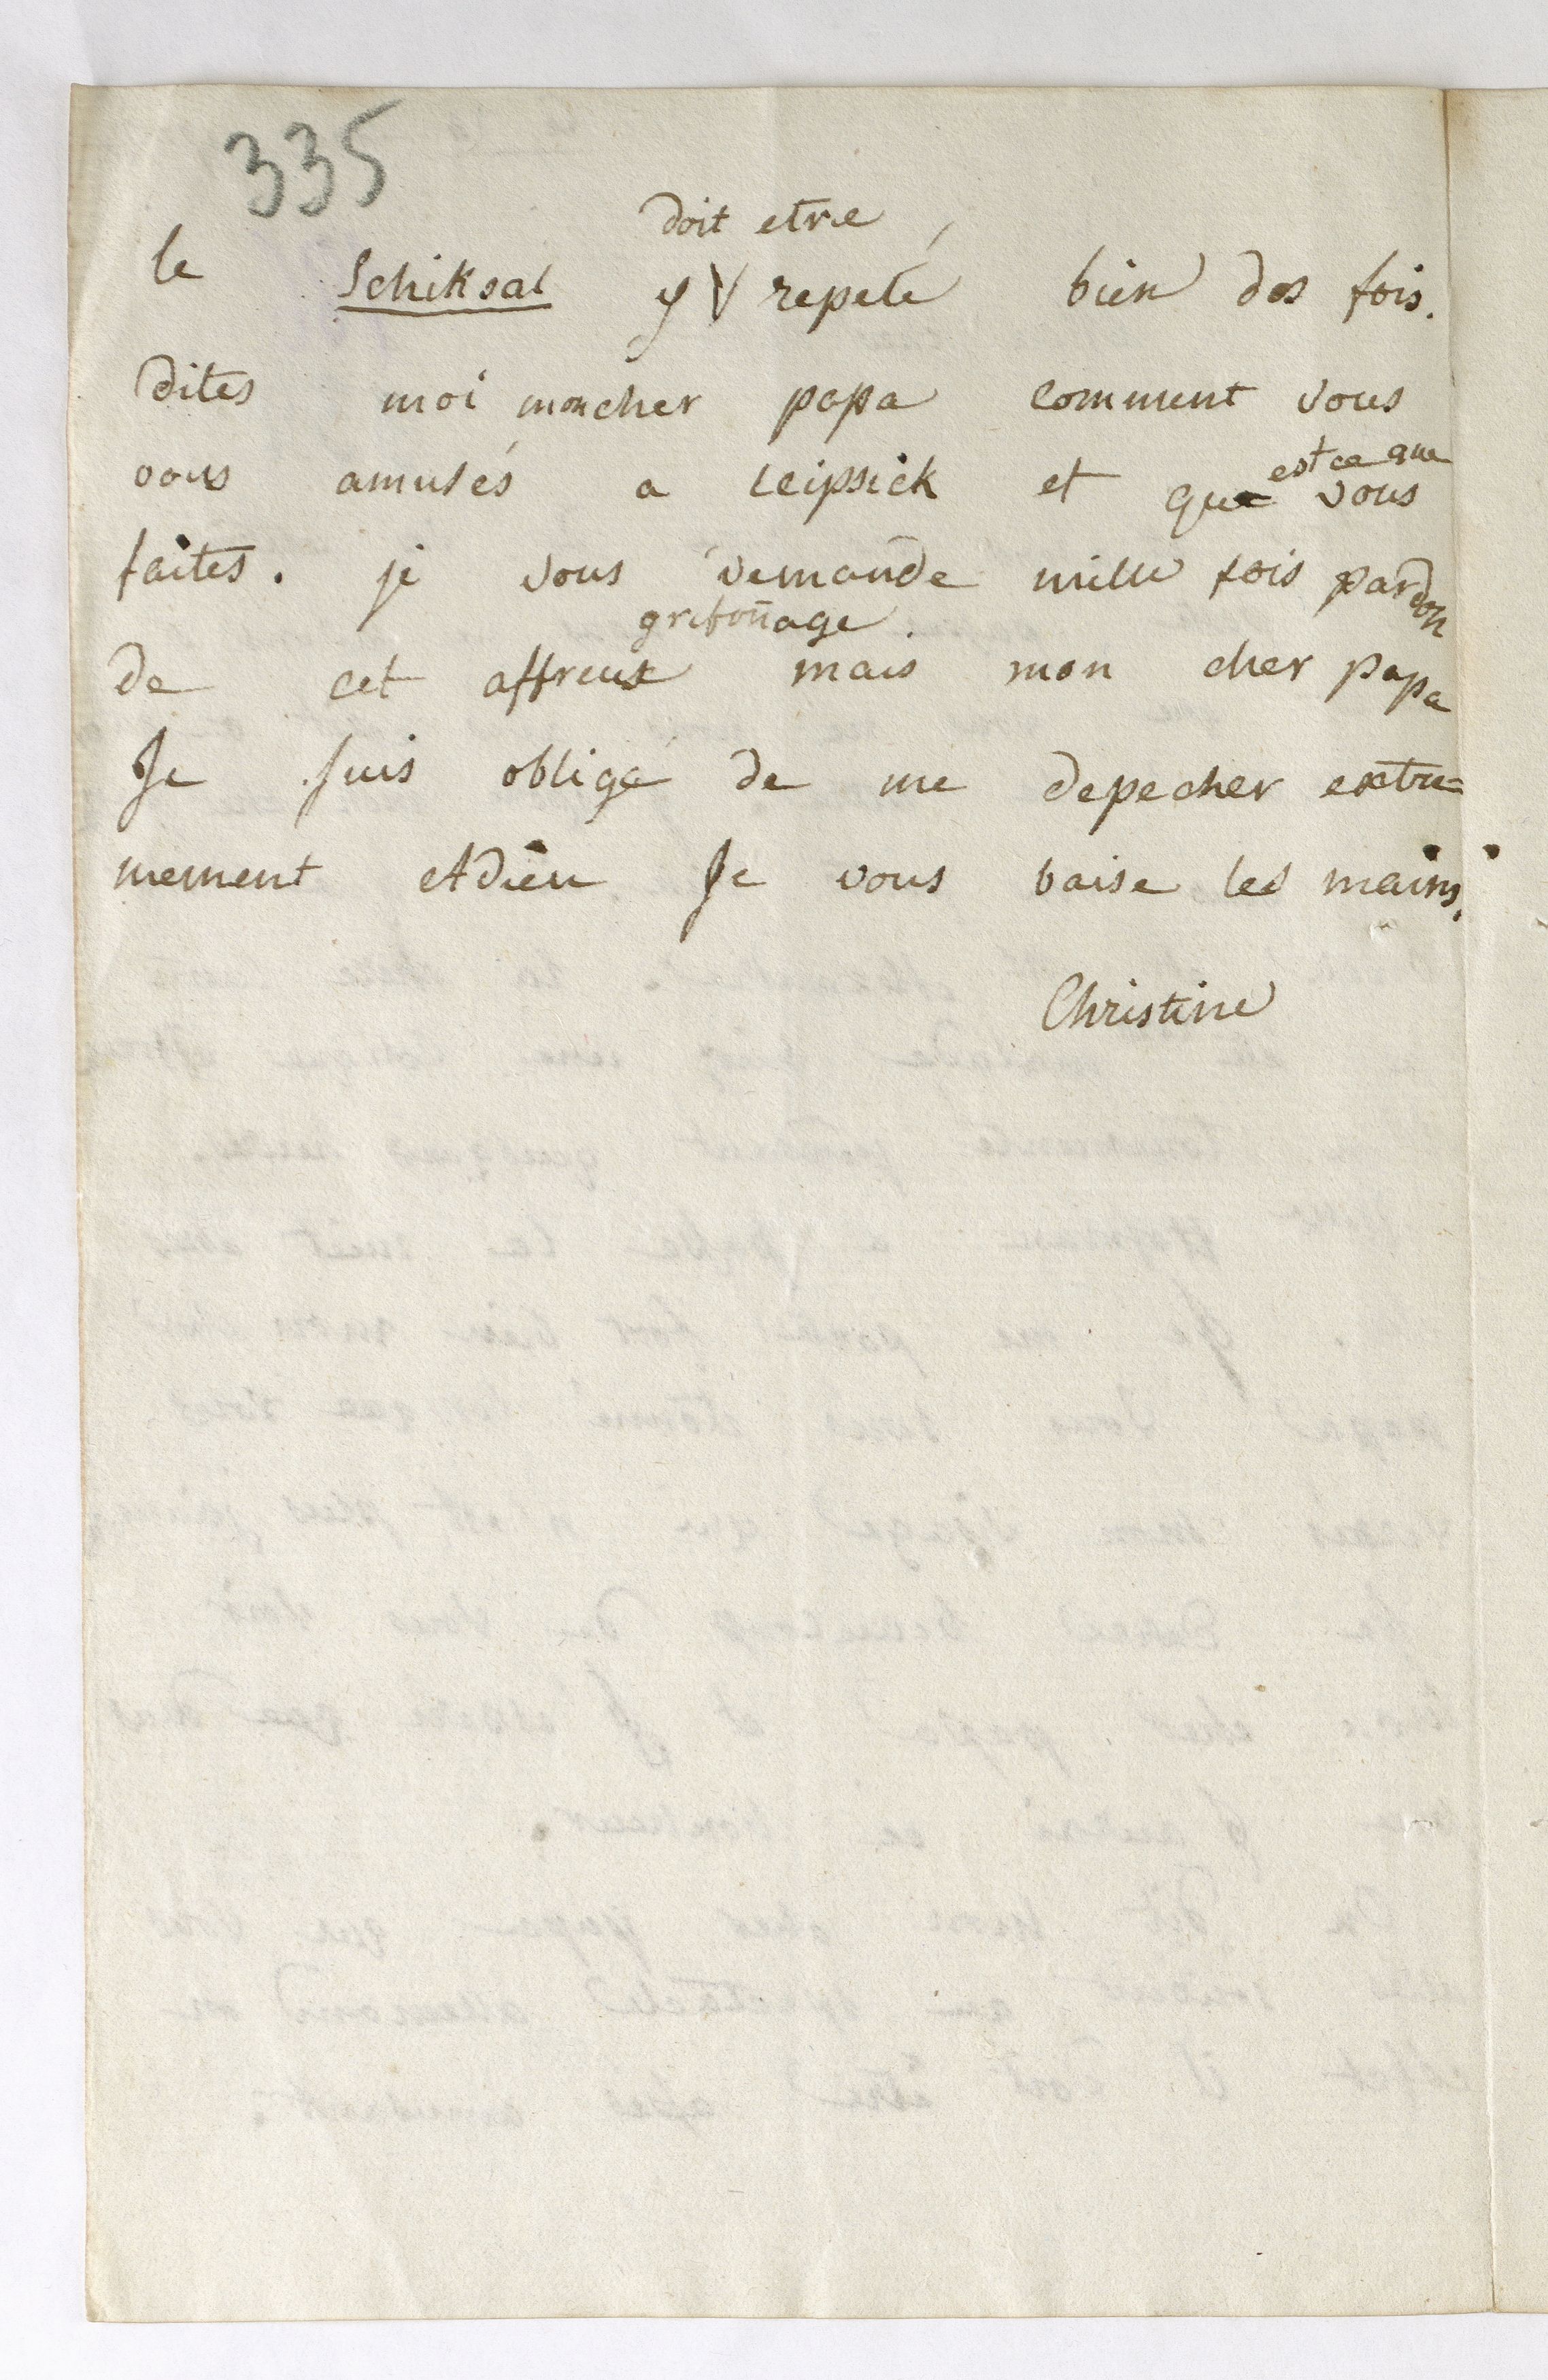 335
doit etre
le Schiksal y V repeté bien des fois.
dites moi mon cher papa comment vous
est ce que
vous amusés a Leipsick et que vous
faites. je vous demande mille fois pardon
grifoñage
de cet affreux mais mon cher papa
Je suis obligé de me depecher extre=
mement Adieu Je vous baise les mains.
Christine